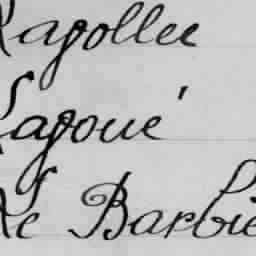 Lapollee
Lapoué
Le Barbie